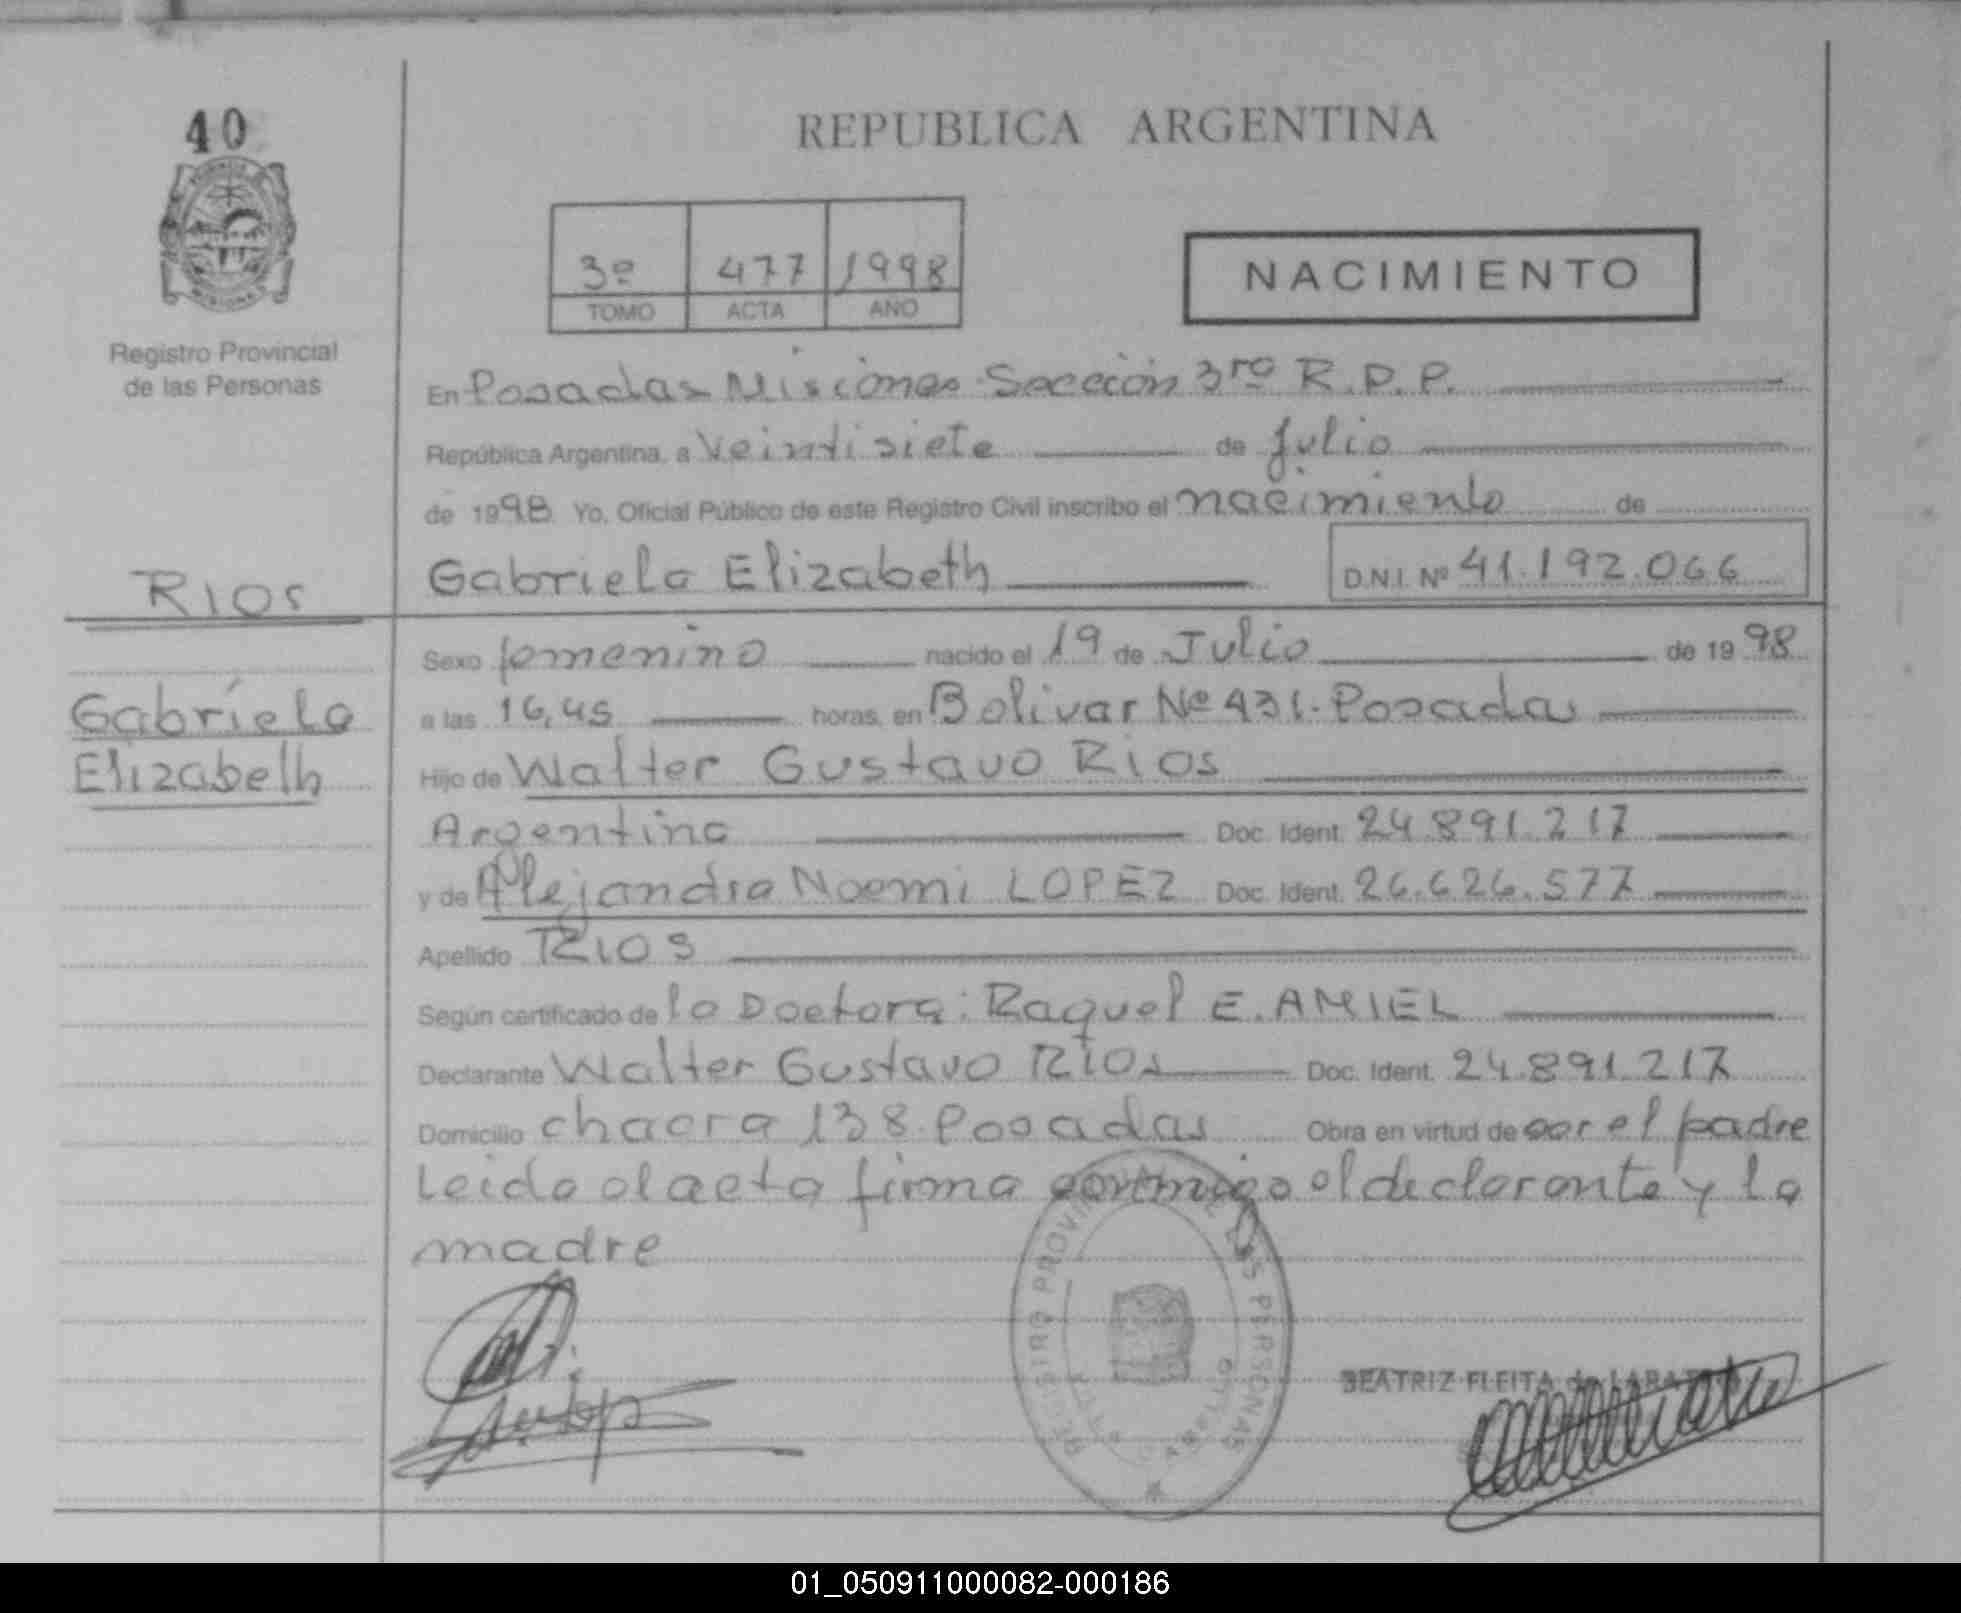 40
REPUBLICA ARGENTINA
3º 477 1998
TOMO ACTA AÑO
NACIMIENTO
Registro Provincial
de las Personas
En Posadas Misiones Sección 3ro R.P.P.
República Argentina, a Veintisiete de Julio
de 1998 Yo, Oficial Público de este Registro Civil inscribo el nacimiento de
Gabriela Elizabeth D.N.I. Nº 41.192.066
RIOS
Gabriela
Elizabeth
Sexo femenino nacido el 19 de Julio de 1998
a las 16,45 horas, en Bolivar Nº 431. Posadas
Hijo de Walter Gustavo Rios
Argentino Doc. Ident. 24.891.217
y de Alejandra Noemi LOPEZ Doc. Ident. 26.626.577
Apellido RIOS
Según certificado de la Doctora: Raquel E. AMIEL
Declarante Walter Gustavo RIOS Doc. Ident. 24.891.217
Domicilio chacra 138. Posadas Obra en virtud de ser el padre
Leida el acta firma conmigo el declarante y la
madre
REGISTRO PROVINCIAL DE LAS PERSONAS
BEATRIZ FLEITA de
01_050911000082-000186